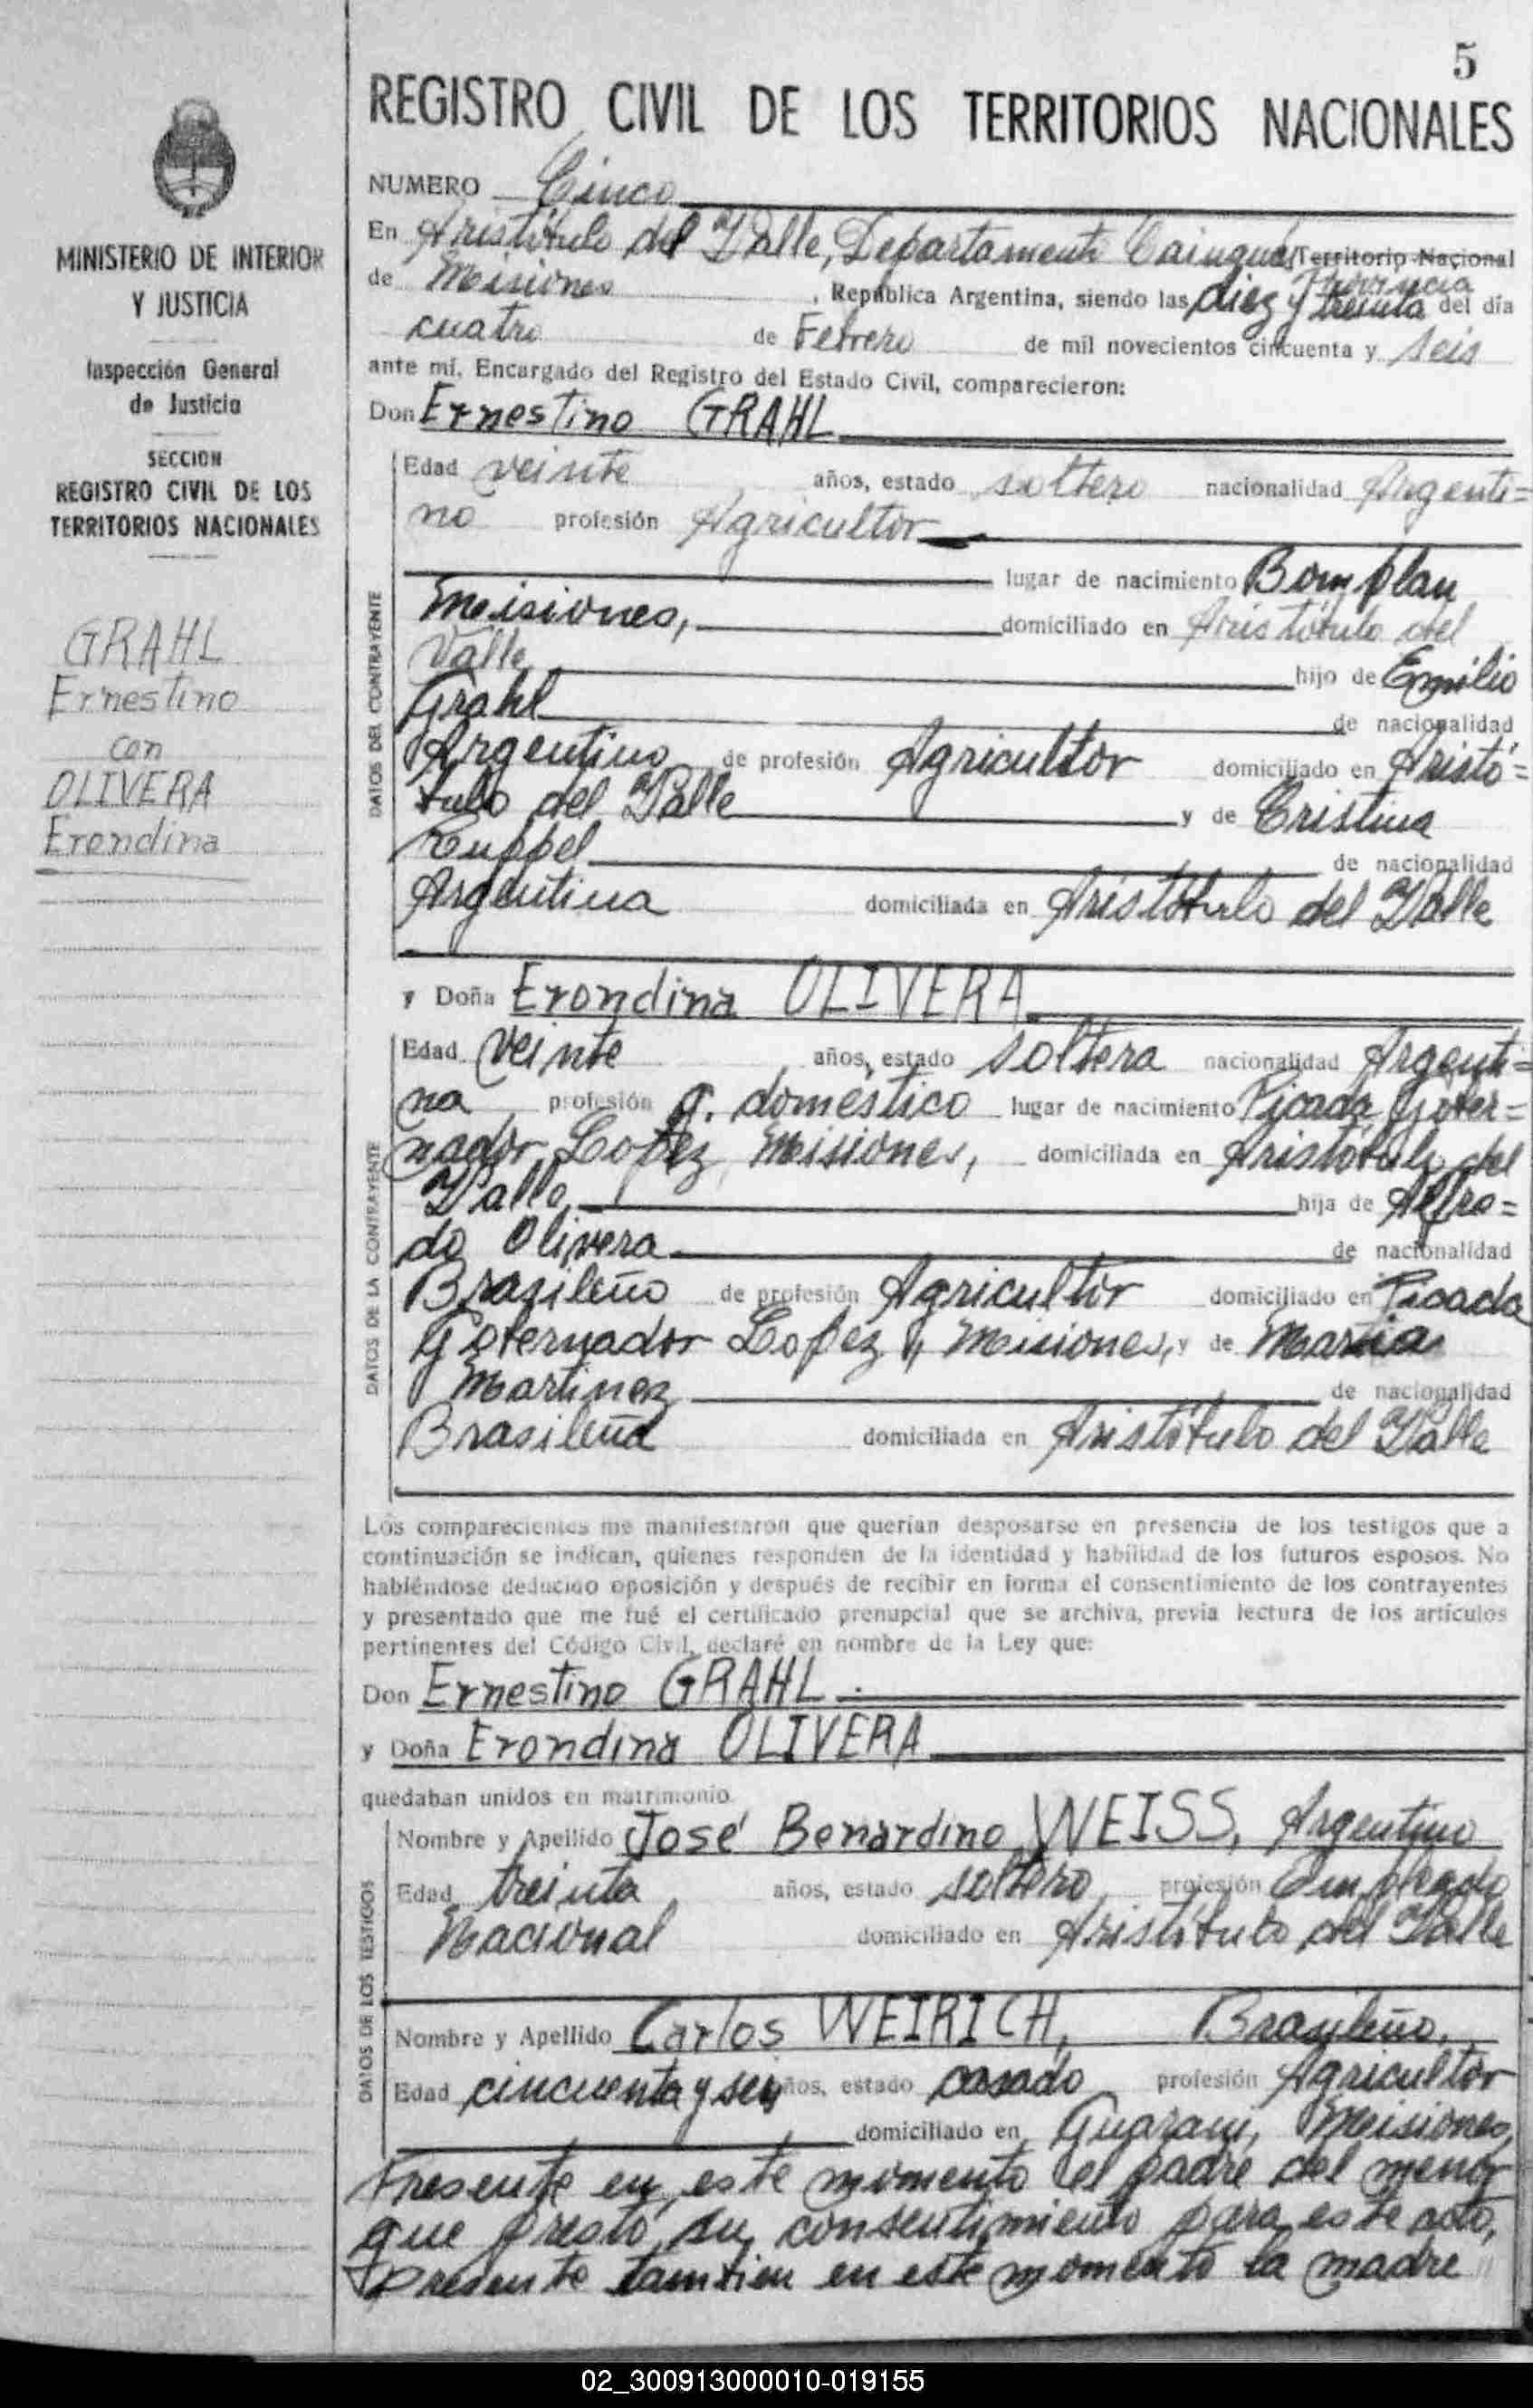 5
REGISTRO CIVIL DE LOS TERRITORIOS NACIONALES
MINISTERIO DE INTERIOR
Y JUSTICIA
Inspección General
de Justicia
SECCION
REGISTRO CIVIL DE LOS
TERRITORIOS NACIONALES
GRAHL
Ernestino
con
OLIVERA
Erondina
NUMERO Cinco
En Aristóbulo del Valle, Departamento Cainguás Territorio Nacional
Provincia
de Misiones, República Argentina, siendo las diez y treinta del día
cuatro de Febrero de mil novecientos cincuenta y seis
ante mí, Encargado del Registro del Estado Civil, comparecieron:
Don Ernestino GRAHL
DATOS DEL CONTRAYENTE
Edad veinte años, estado soltero nacionalidad Argenti=
no profesión Agricultor
lugar de nacimiento Bomplan
Misiones, domiciliado en Aristóbulo del
Valle hijo de Emilio
Grahl de nacionalidad
Argentino de profesión Agricultor domiciliado en Aristó=
bulo del Valle y de Cristina
de nacionalidad
Argentina domiciliada en Aristóbulo del Valle
y Doña Erondina OLIVERA
DATOS DE LA CONTRAYENTE
Edad veinte años, estado soltera nacionalidad Argenti=
na profesión q. doméstico lugar de nacimiento Picada Gober=
nador Lopez, Misiones, domiciliada en Aristóbulo del
Valle, hija de Alfre=
do Olivera de nacionalidad
Brasileño de profesión Agricultor domiciliado en Picada
Gobernador Lopez, Misiones, y de Maria
Martinez de nacionalidad
Brasileña domiciliada en Aristóbulo del Valle
Los comparecientes me manifestaron que querían desposarse en presencia de los testigos que a
continuación se indican, quienes responden de la identidad y habilidad de los futuros esposos. No
habiéndose deducido oposición y después de recibir en forma el consentimiento de los contrayentes
y presentado que me fué el certificado prenupcial que se archiva, previa lectura de los artículos
pertinentes del Código Civil, declaré en nombre de la Ley que:
Don Ernestino GRAHL
y Doña Erondina OLIVERA
quedaban unidos en matrimonio.
DATOS DE LOS TESTIGOS
Nombre y Apellido José Benardino WEISS, Argentino
Edad treinta años, estado soltero profesión Empleado
Nacional domiciliado en Aristóbulo del Valle
Nombre y Apellido Carlos WEIRICH, Brasileño,
Edad cincuenta y seis años, estado casado profesión Agricultor
domiciliado en Guarani, Misiones,
Presente en este momento el padre del menor
que prestó su consentimiento para este acto,
Presente tambien en este momento la madre
02_300913000010-019155